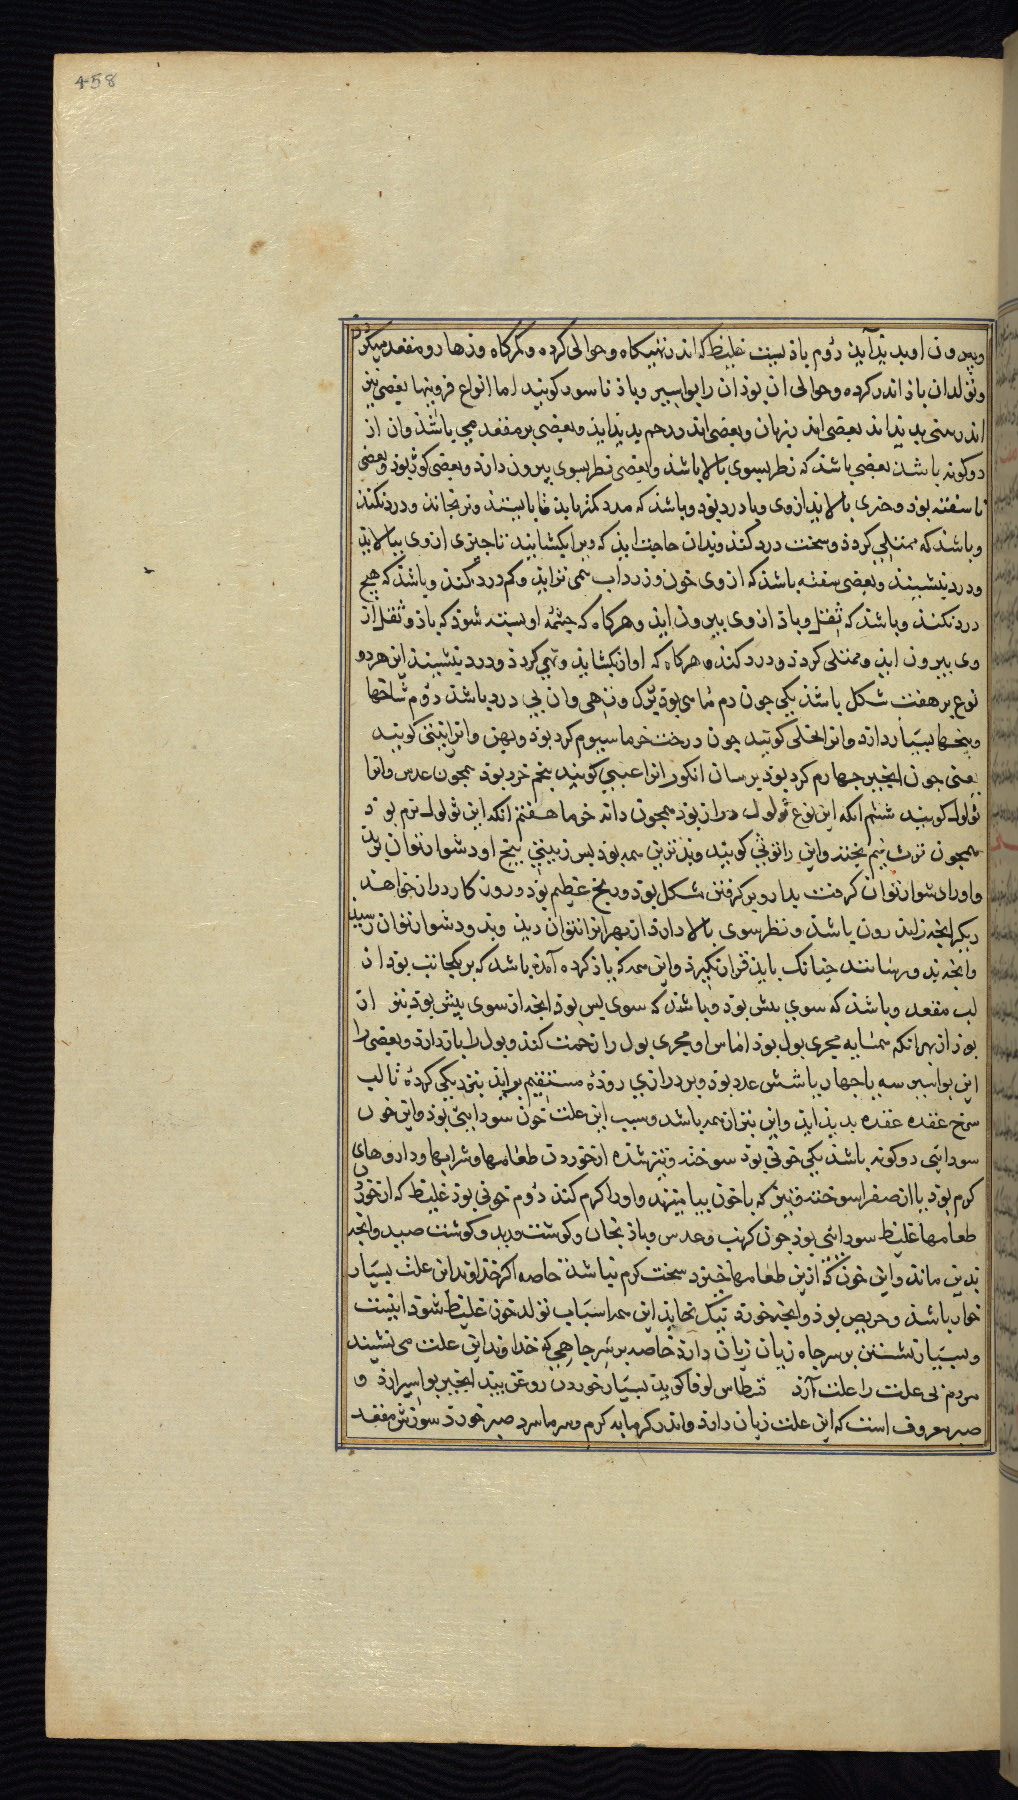 458
وبیرون او بدید آید دوم باذیست غلیظ که اندر تهیگاه و حوالی کرده و کمرگاه و زهار و مقعد میگردد
و تولد ان باذ اندر کرده و حوالی ان بوذ ان را بواسیر و باذ ناسور کویند اما انواع فزونیها بعضی
اندر بینی بدید اید بعضی اندر زهدان و بعضی اندر رحم بدید اید و بعضی بر مقعد می باشد وان از
دو کونه باشد بعضی باشد که نظر بسوی بالا باشد و بعضی نظر بسوی بیرون دارد و بعضی کور بوذ و بعضی
ناسفته بوذ و چیزی بالاید ازوی و با درد بوذ و باشد که مدد کمتر یابد تا باایستد و نرنجاند و درد نکند
و باشد که ممتلی کردد و سخت درد کند و بدان حاجت اید که ویرا بکشایند تا چیزی ازوی بپالاید
و درد بنشیند و بعضی سفته باشد که از وی خون و زرداب همی تراید و کم درد کند و باشد که هیچ
درد نکند و باشد که ثفل و باذ از وی بیرون اید و هرکاه که چشمه او بسته شود که باذ و ثفل از
وی بیرون اید و ممتلی کردد و درد کند و هرکاه که اواز بکشاید و تهی کردد و درد بنشیند این هر دو
نوع بر هفت شکل باشد یکی چون دم ماهی بوذ بزرک و تهی و ان بی درد باشد دوم شاخها
و بیخها بسیار دارد و انرا نخلی کویند چون درخت خرما سیوم کرد بوذ و پهن و انرا تینی کویند
یعنی چون انجیر چهارم کرد بوذ برسان انکور انرا عنبی کویند پنجم خرد بوذ همچون عدس و انرا
ثولول کویند ششم انکه این نوع ثولول دراز بوذ همچون دانه خرما هفتم انکه این ثولول نرم بوذ
همچون توث نیم پخته و این را توثی کویند و بدترین همه بوذ پس زینتی بیخ او دشوار توان برید
و اورا دشوار توان کرفت بدارو بر کرفتن مشکل بوذ و رنج عظیم بوذ و روزکار دراز خواهد
دیکر انچه زاید رون باشد و نظر سوی بالا دارد از بهر انرا نتوان دید و بدو دشوار توان رسید
و انچه بدو رسانند چنانک باید قرار نکیرد و این همه که یاذ کرده آمد باشد که بر یکجانب بوذ از
لب مقعد و باشد که سوی پیش بوذ و باشد که سوی پس بوذ انچه از سوی پیش بوذ بتر از
بوذ از بهر انکه همسایه مجری بول بوذ اماس او مجری بول را زحمت کند و بول را بازدارد و بعضی را
این بواسیر سه یا چهار یا شش عدد بوذ و بر درازی روده مستقیم بر اید بنزدیکی کرده تا لب
سرخ عقده عقده بدید اید و این بتر از همه باشد و سبب این علت خون سودایی بوذ و این خون
سودایی دو کونه باشد یکی خونی بوذ سوخته و تیز شده از خوردن طعامها و شرابها و داروهای
کرم بوذ یا از صفرا سوخته و تیز که با خون بیامیزد و اورا کرم کند دوم خونی بوذ غلیظ که از خوردن
طعامها غلیظ سودایی بوذ چون کرنب و عدس و باذنجان و کوشت قدید و کوشت صید و انچه
بدین ماند و این خون که ازین طعامها خیزد سخت کرم نباشد خاصه اکر خذاوند این علت بسیار
خوار باشد و حریص بوذ و انچه خورد نیک نخاید این همه اسباب تولد خون غلیظ شود اینست
و بسیار نشستن بر سر چاه زیان زیان دارد خاصه بر سر چاهی که خذاوند این علت می نشیند
مردم بی علت را علت آرد قسطاس لوقا کوید بسیار خوردن روغن بید انجیر بواسیر ارد و
صبر معروف است که این علت زیان دارد و اندر کرمابه کرم و سرما سرد صبر خورد سوزش مقعد